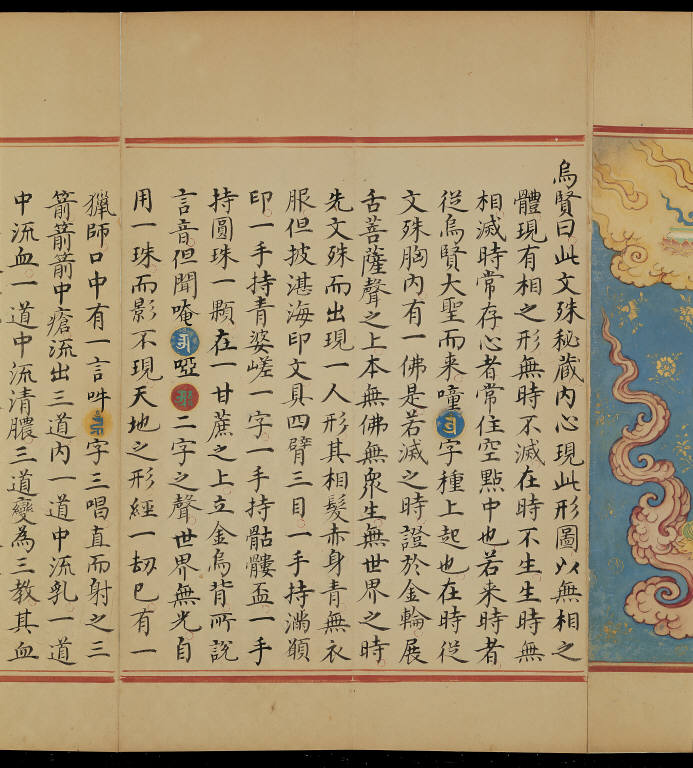 烏賢曰此文殊秘藏内心現此形圖以無相之
體現有相之形無時不滅在時不生生時無
相滅時常存心者常住空點中也若来時者
從烏賢大聖而来噇字種上起也在時從
文殊胸内有一佛是若滅之時證於金輪展
舌菩薩聲之上本無佛無衆生無世界之時
先文殊而出現一人形其相髮赤身青無衣
服但披湛海印文具四臂三目一手持滿願
印一手持青婆嵯一字一手持骷髏盃一手
持圓珠一顆在一甘蔗之上立金烏背所説
言音但聞唵啞二字之聲世界無光自
用一珠而影不現天地之形經一刼已有一
獵師口中有一言吽字三唱直而射之三
箭箭箭中瘡流出三道内一道中流乳一道
中流血一道中流清膿三道變為三教其血